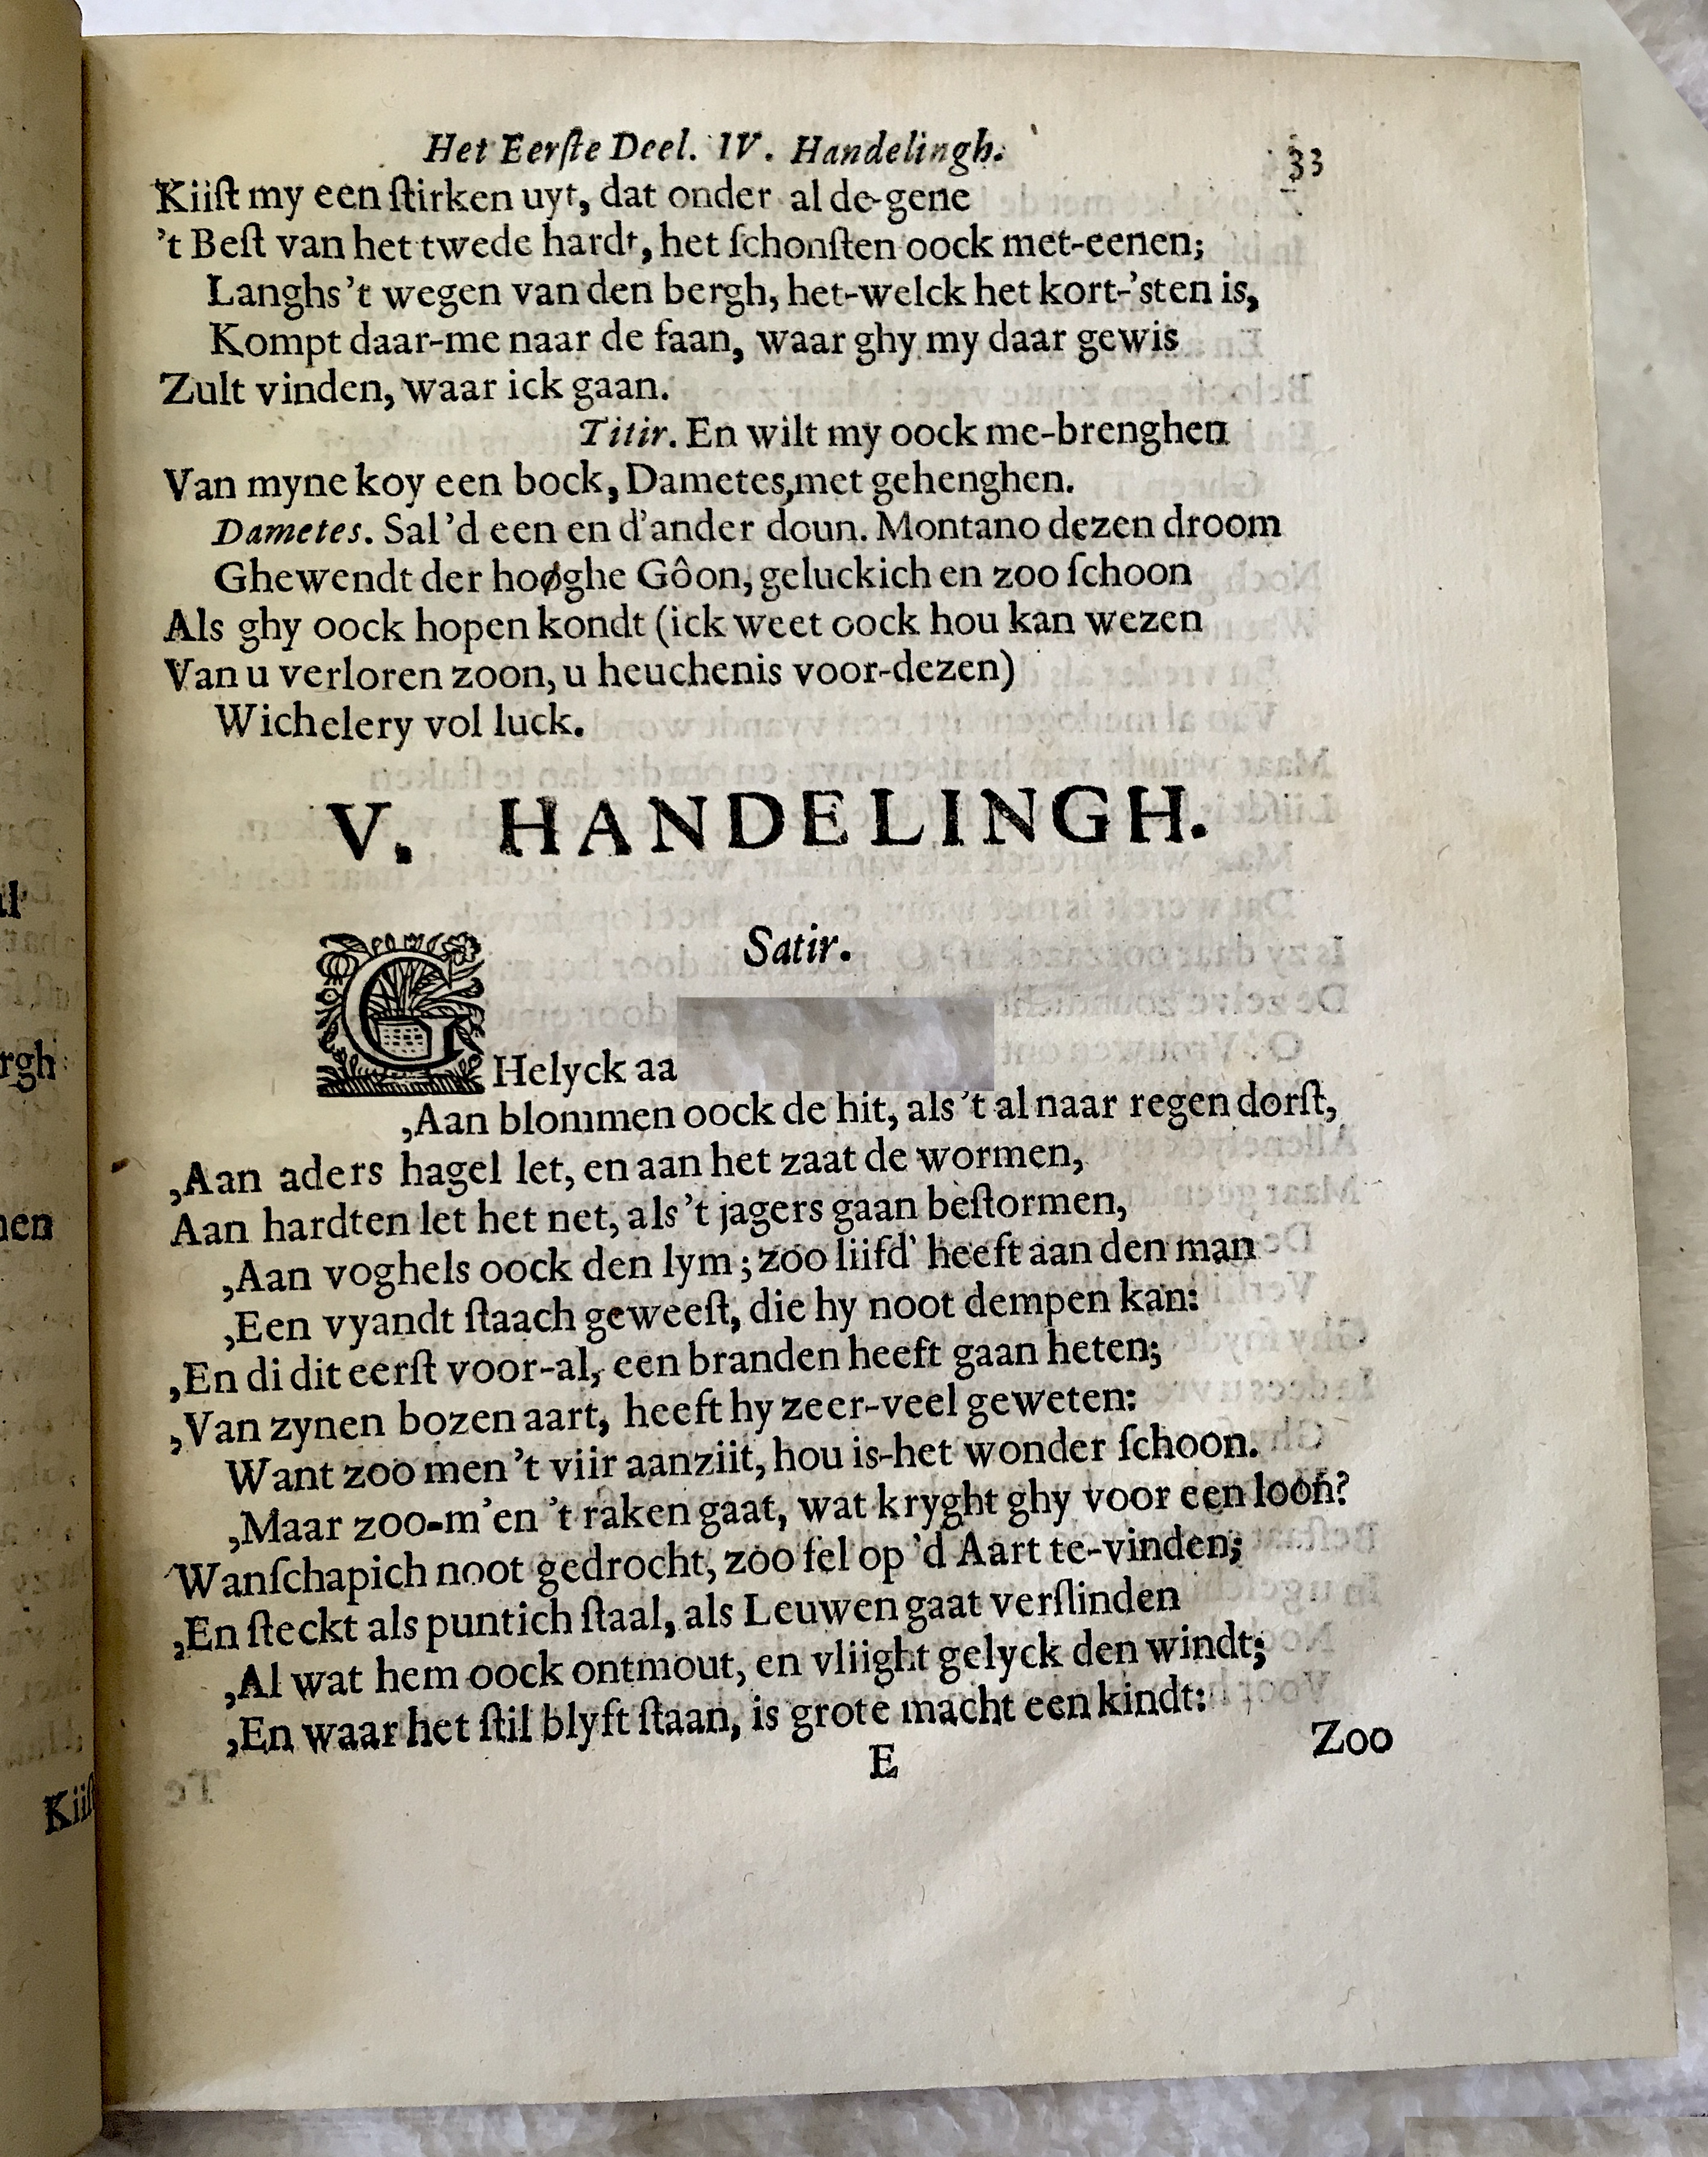 Het Eerſte Deel. IV. Handelingh. 33
Kiiſt my een ſtirken uyt, dat onder al de-gene
't Beſt van het twede hardt, het ſchonſten oock met-eenen;
Langhs 't wegen van den bergh, het-welck het kort-'sten is,
Kompt daar-me naar de faan, waar ghy my daar gewis
Zult vinden, waar ick gaan.
Titir. En wilt my oock me-brenghen
Van myne koy een bock, Dametes, met gehenghen.
Dametes. Sal 'd een en d'ander doun. Montano dezen droom
Ghewendt der hooghe Gôon, geluckich en zoo ſchoon
Als ghy oock hopen kondt (ick weet oock hou kan wezen
Van u verloren zoon, u heuchenis voor-dezen)
Wichelery vol luck.
V. HANDELINGH.
Satir.
GHelyck aa
,Aan blommen oock de hit, als 't al naar regen dorſt,
,Aan aders hagel let, en aan het zaat de wormen,
Aan hardten let het net, als 't jagers gaan beſtormen,
,Aan voghels oock den lym; zoo liifd' heeft aan den man
,Een vyandt ſtaach geweeſt, die hy noot dempen kan:
,En di dit eerſt voor-al, een branden heeft gaan heten;
,Van zynen bozen aart, heeft hy zeer-veel geweten:
Want zoo men 't viir aanziit, hou is-het wonder ſchoon.
,Maar zoo-m'en 't raken gaat, wat kryght ghy voor een loon?
Wanſchapich noot gedrocht, zoo fel op 'd Aart te-vinden;
,En ſteckt als puntich ſtaal, als Leuwen gaat verſlinden
,Al wat hem oock ontmout, en vliight gelyck den windt;
,En waar het ſtil blyft ſtaan, is grote macht een kindt:
E Zoo